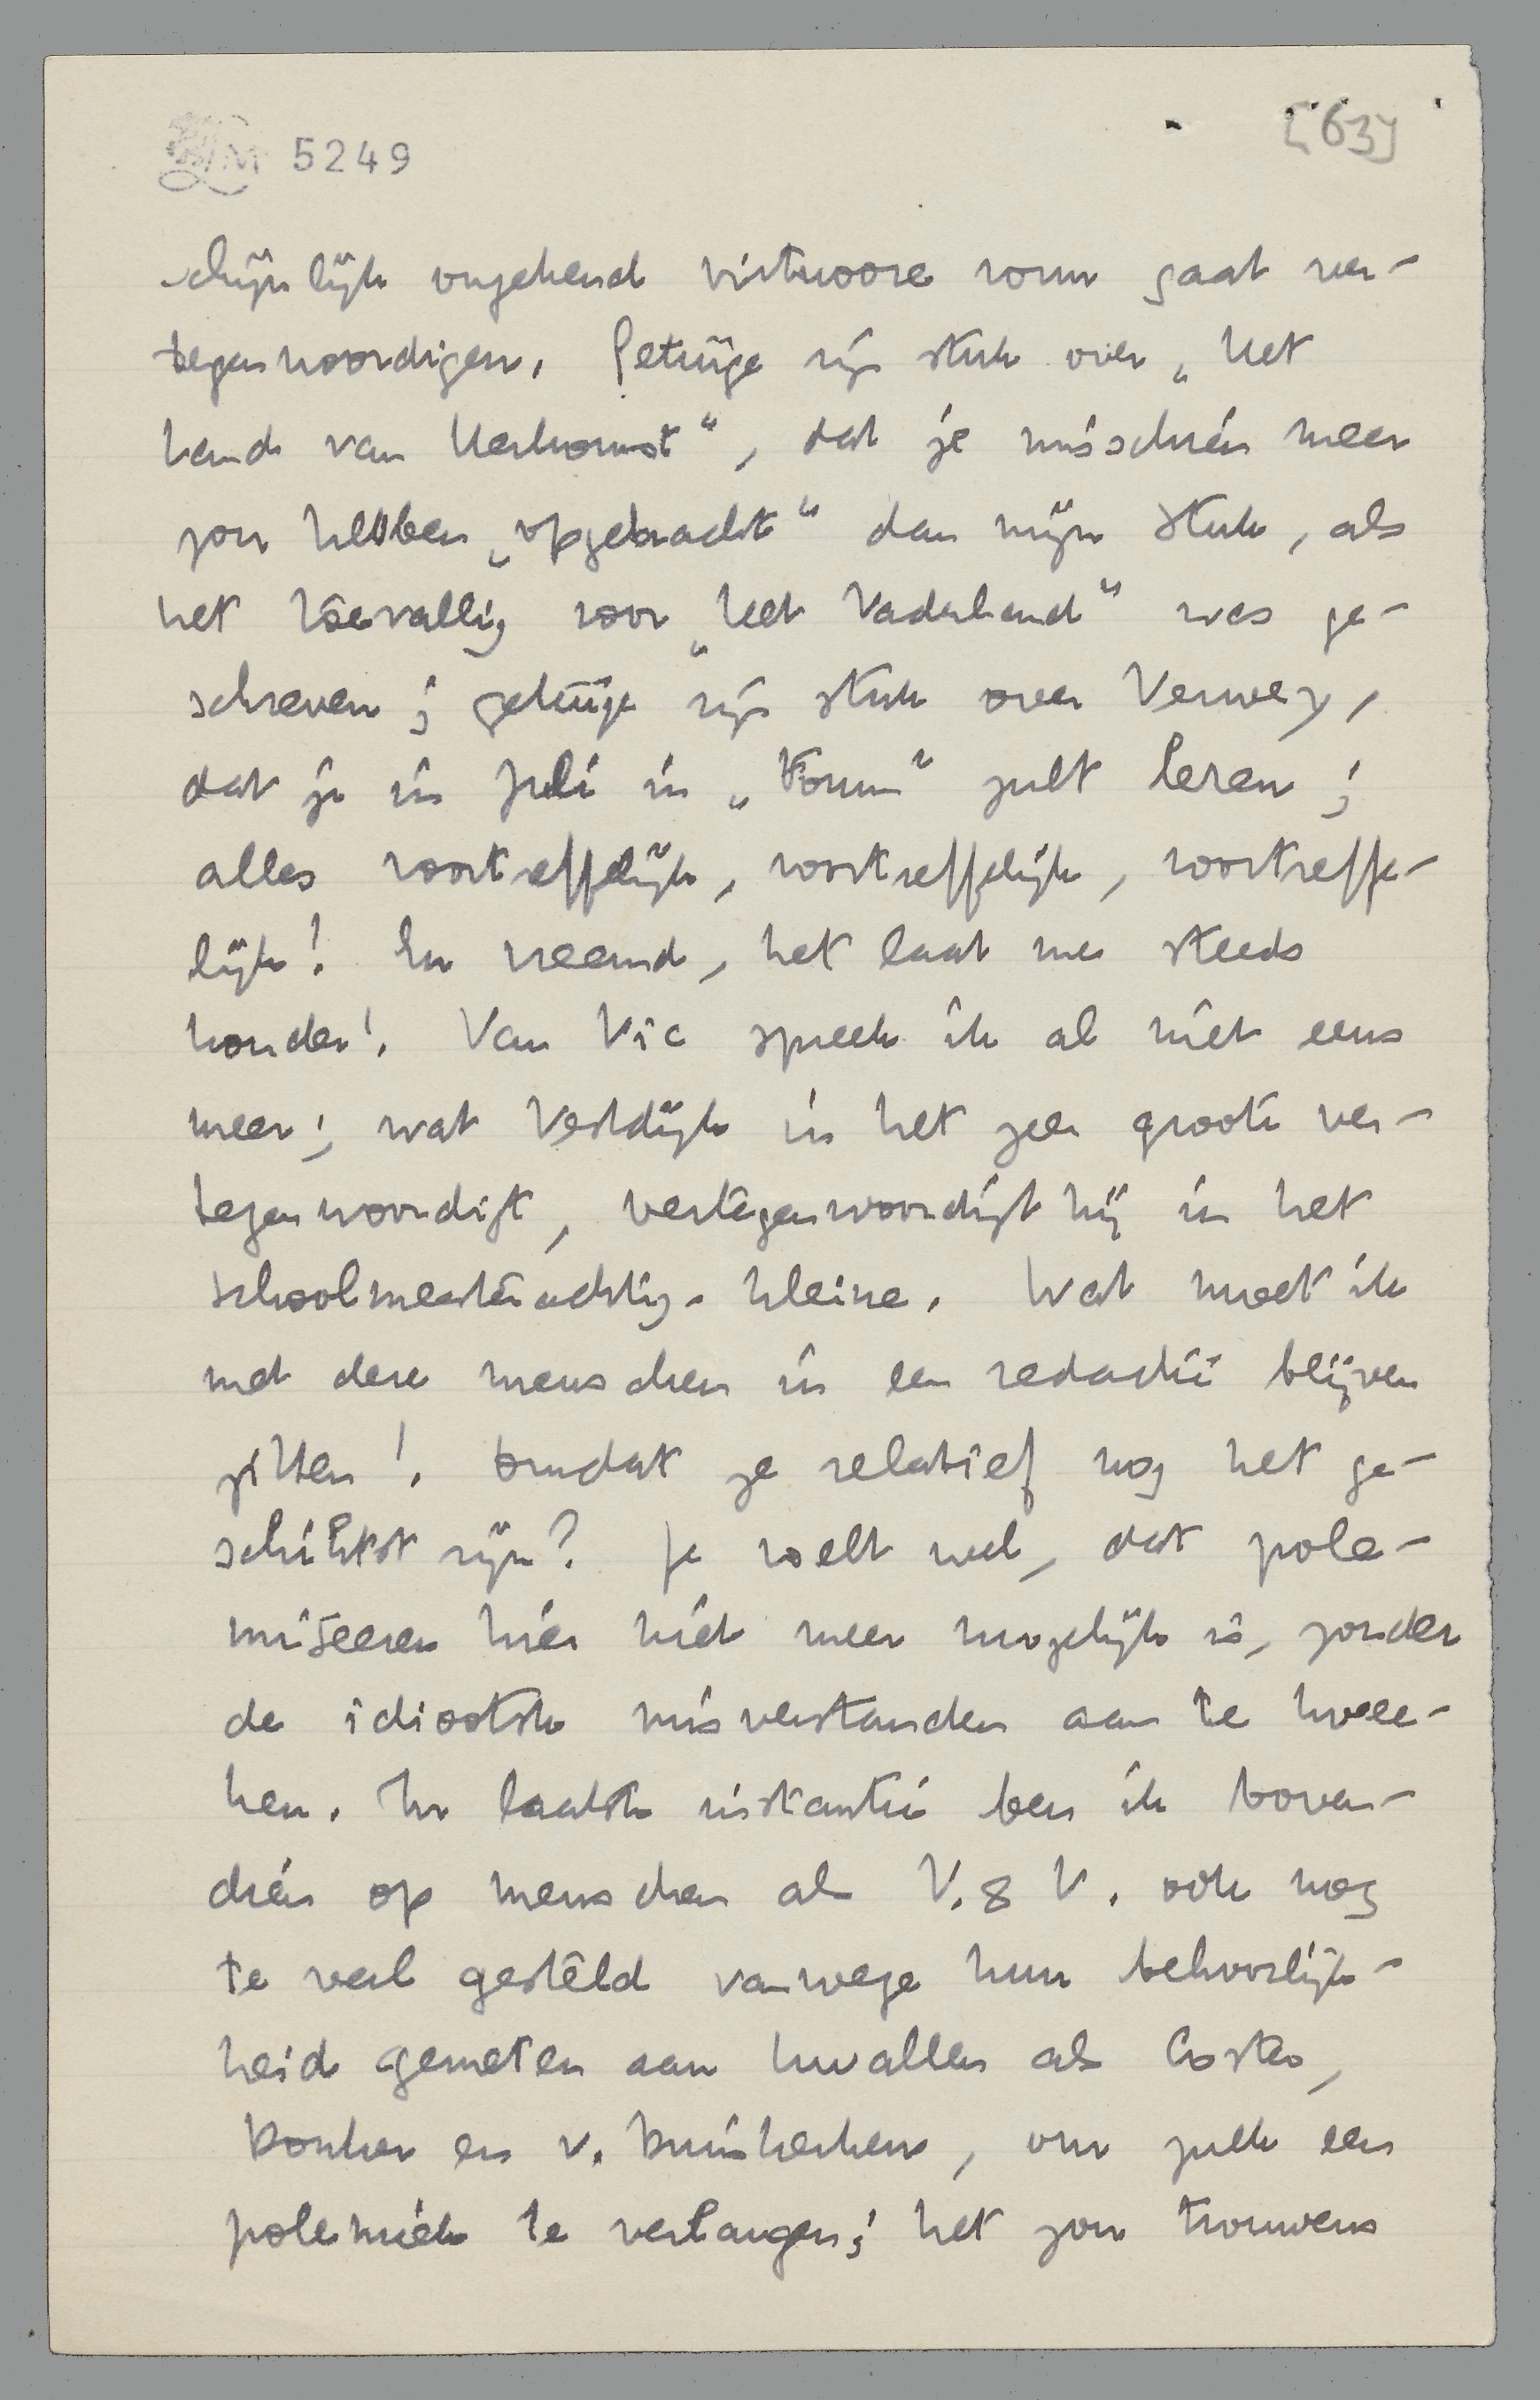 LM 5249
[63]
schijnlijk ongekend virtuoze vorm gaat ver-
tegenwoordigen. Getuige zijn stuk over „Het
Land van Herkomst”, dat je misschien meer
zou hebben „opgebracht” dan mijn stuk, als
het toevallig voor „Het Vaderland” was ge-
schreven; getuige zijn stuk over Verwey,
dat je in Juli in „Forum” zult lezen;
alles voortreffelijk, voortreffelijk, voortreffe-
lijk! En vreemd, het laat me steeds
kouder! Van Vic spreek ik al niet eens
meer; wat Vestdijk in het zeer groote ver-
tegenwoordigt, vertegenwoordigt hij in het
schoolmeesterachtig-kleine. Wat moet ik
met deze menschen in een redactie blijven
zitten! Omdat ze relatief nog het ge-
schiktst zijn? Je voelt wel, dat pole-
miseeren hier niet meer mogelijk is, zonder
de idiootste misverstanden aan te kwee-
ken. In laatste instantie ben ik boven-
dien op menschen als V. & V. ook nog
te veel gesteld vanwege hun behoorlijk-
heid gemeten aan kwallen als Coster,
Donker en v. Duinkerken, om zulk een
polemiek te verlangen; het zou trouwens